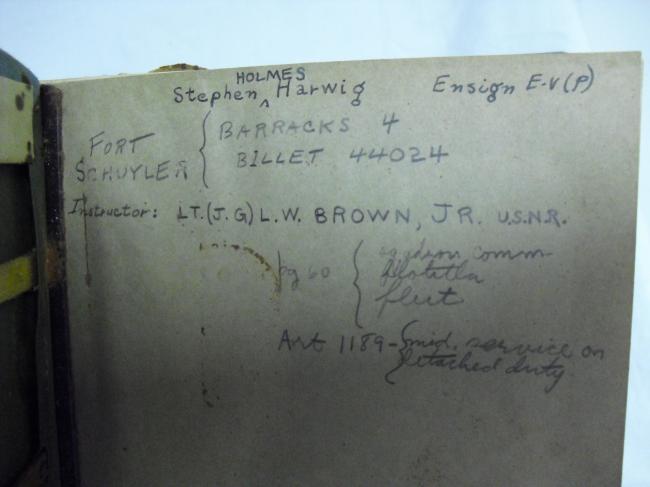 HOLMES
Stephen ^ Harwig Ensign E-V(P)
FORT SCHUYLER { BARRACKS 4
BILLET 44024
Instructor: LT.(J.G) L.W. BROWN, JR. U.S.N.R.
pg 60 { sqdrn comm
flotilla
fleet
Art 1189 - { mid. service on
detached duty